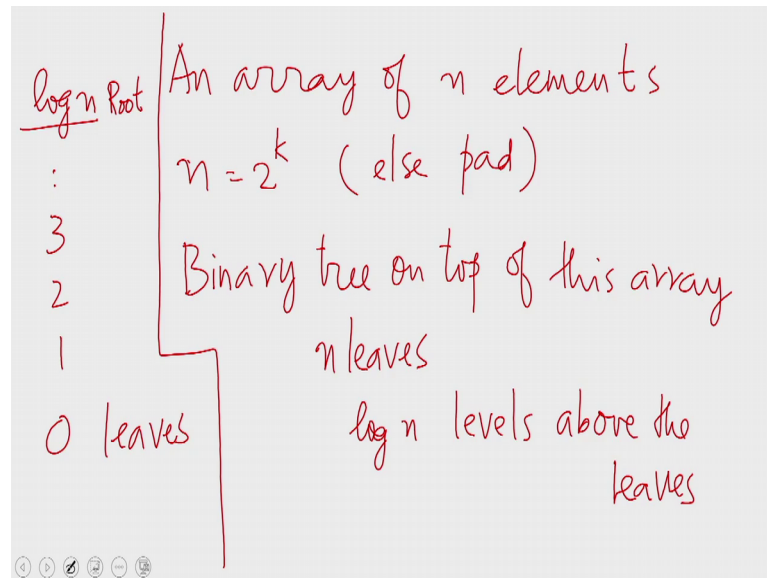 log n Root
:
3
2
1
0 leaves
An array of n elements
n = 2^k (else pad)
Binary tree on top of this array
n leaves
log n levels above the
leaves